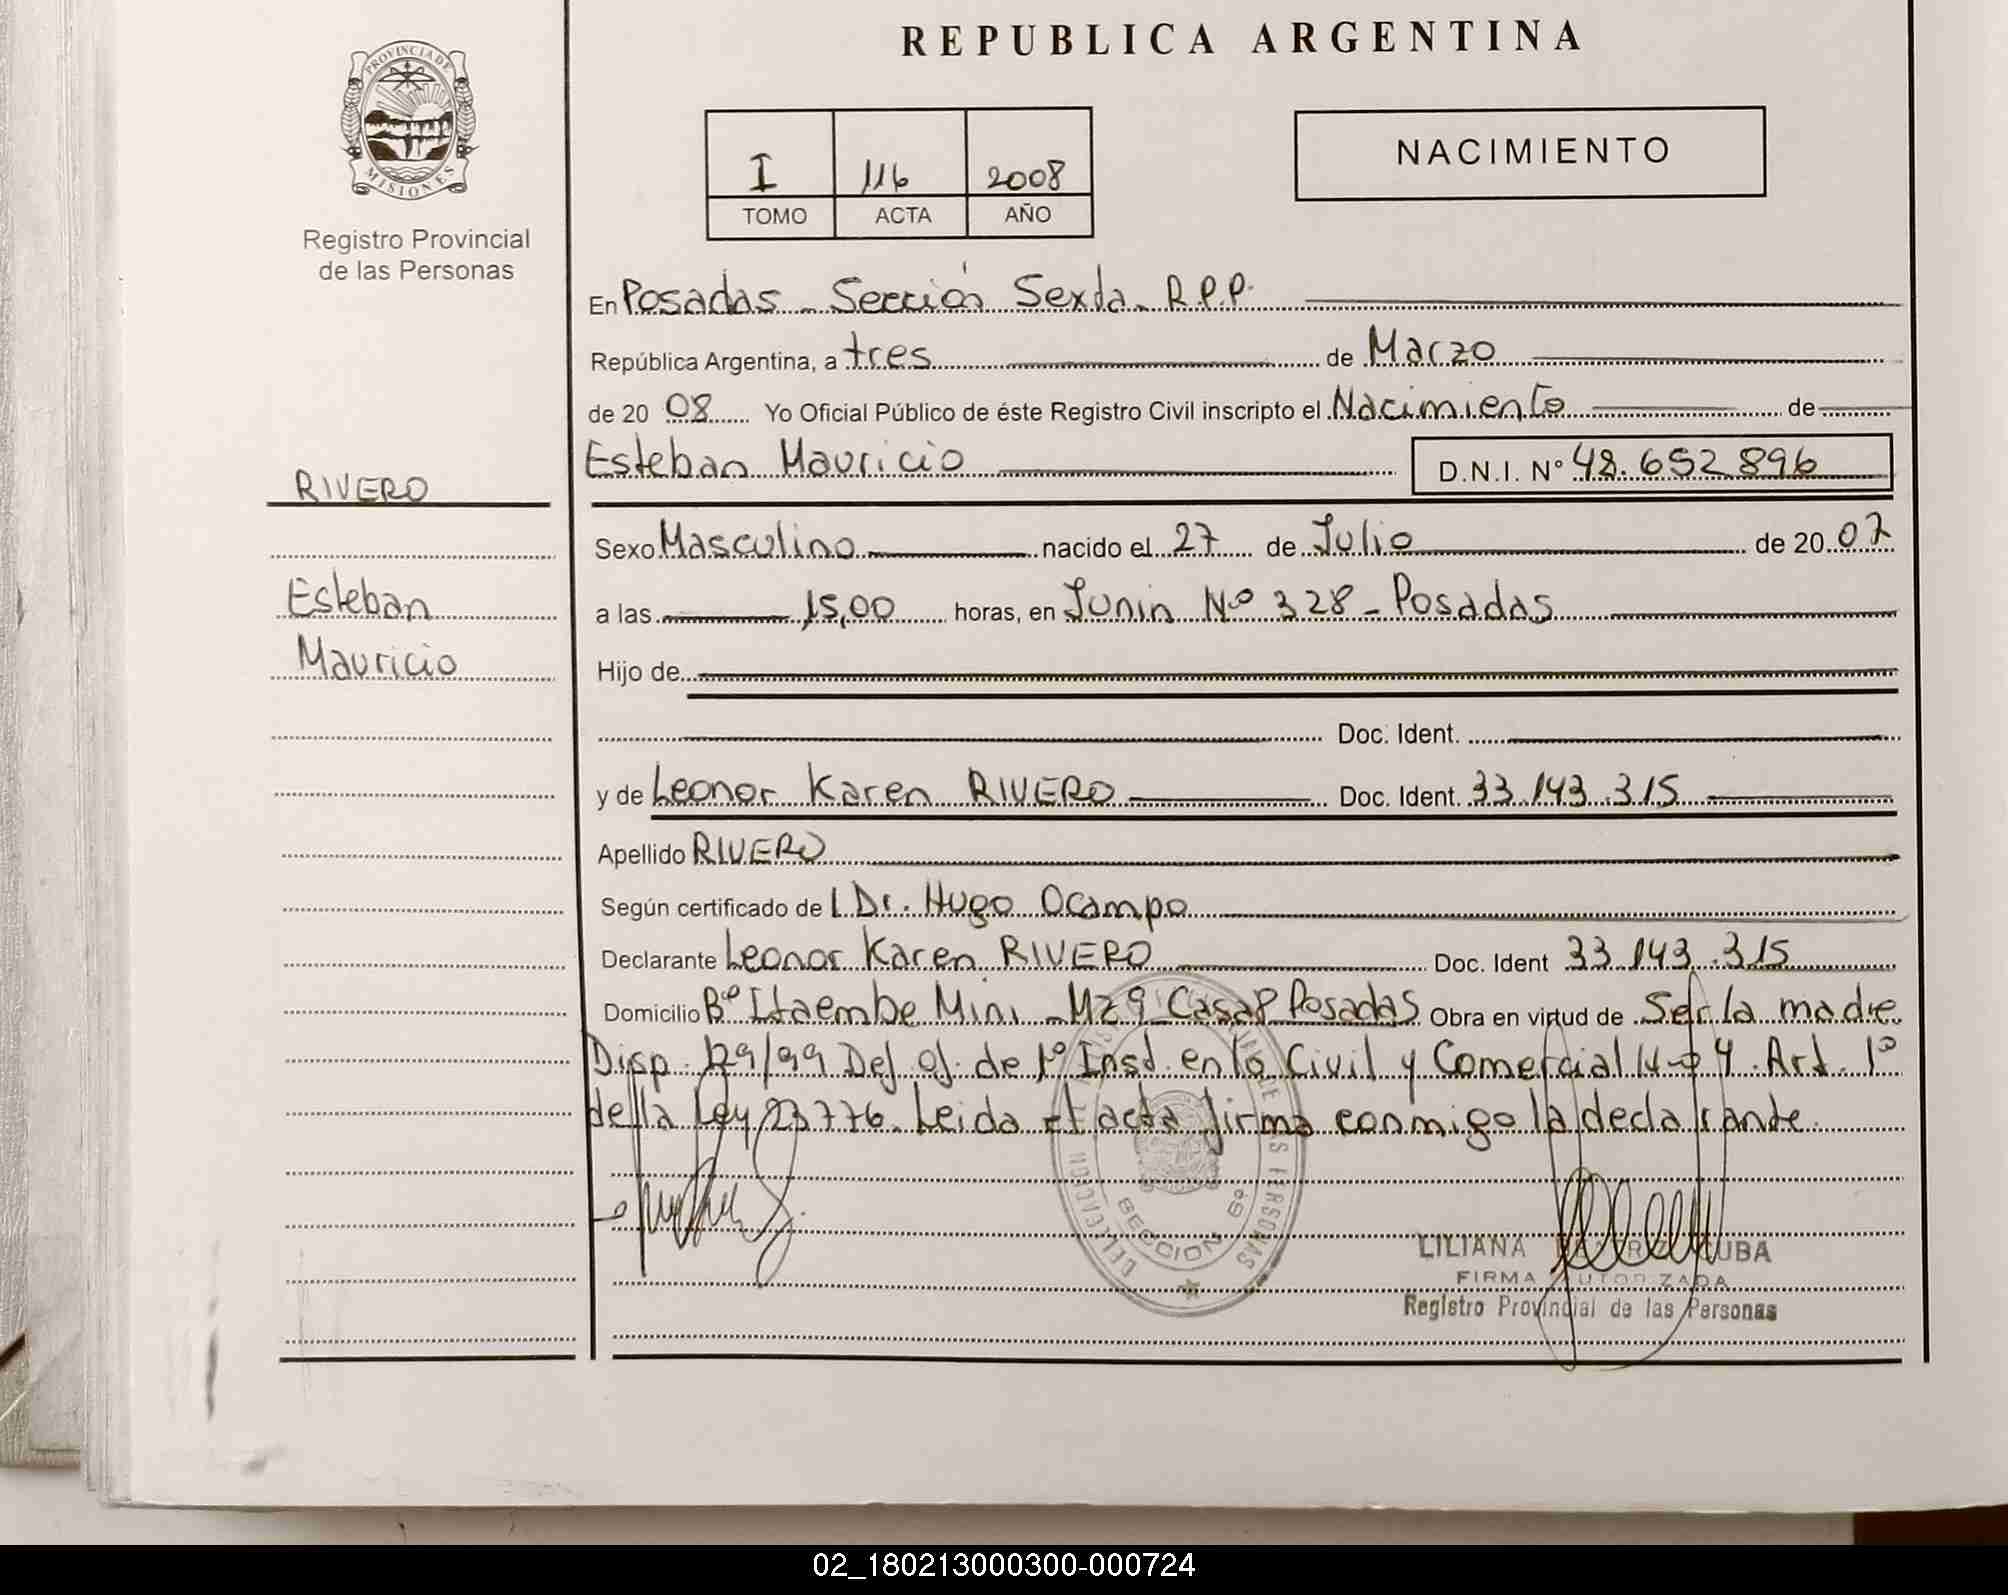 REPUBLICA ARGENTINA
PROVINCIA DE
MISIONES
Registro Provincial
de las Personas
I 116 2008
TOMO ACTA AÑO
NACIMIENTO
En Posadas - Sección Sexta - R.P.P.
República Argentina, a tres de Marzo
de 20 08 Yo Oficial Público de éste Registro Civil inscripto el Nacimiento de
Esteban Mauricio D.N.I. Nº 48.652 896
RIVERO
Sexo Masculino nacido el 27 de Julio de 20 07
Esteban
a las 15,00 horas, en Junin Nº 328 - Posadas
Mauricio
Hijo de
Doc. Ident.
y de Leonor Karen RIVERO Doc. Ident. 33.143.315
Apellido RIVERO
Según certificado de l Dr. Hugo Ocampo
Declarante Leonor Karen RIVERO Doc. Ident 33.143.315
Domicilio Bº Itaembe Mini - Mz 9 Casa 8 Posadas Obra en virtud de Ser la madre
Disp. 129/99 Del Of. de 1º Inst. en lo Civil y Comercial Nº 4. Art. 1º
de la Ley 23776. Leida el acta firma conmigo la declarante.
DELEGACION SECCION 6º
LILIANA
FIRMA AUTORIZADA
Registro Provincial de las Personas
02_180213000300-000724